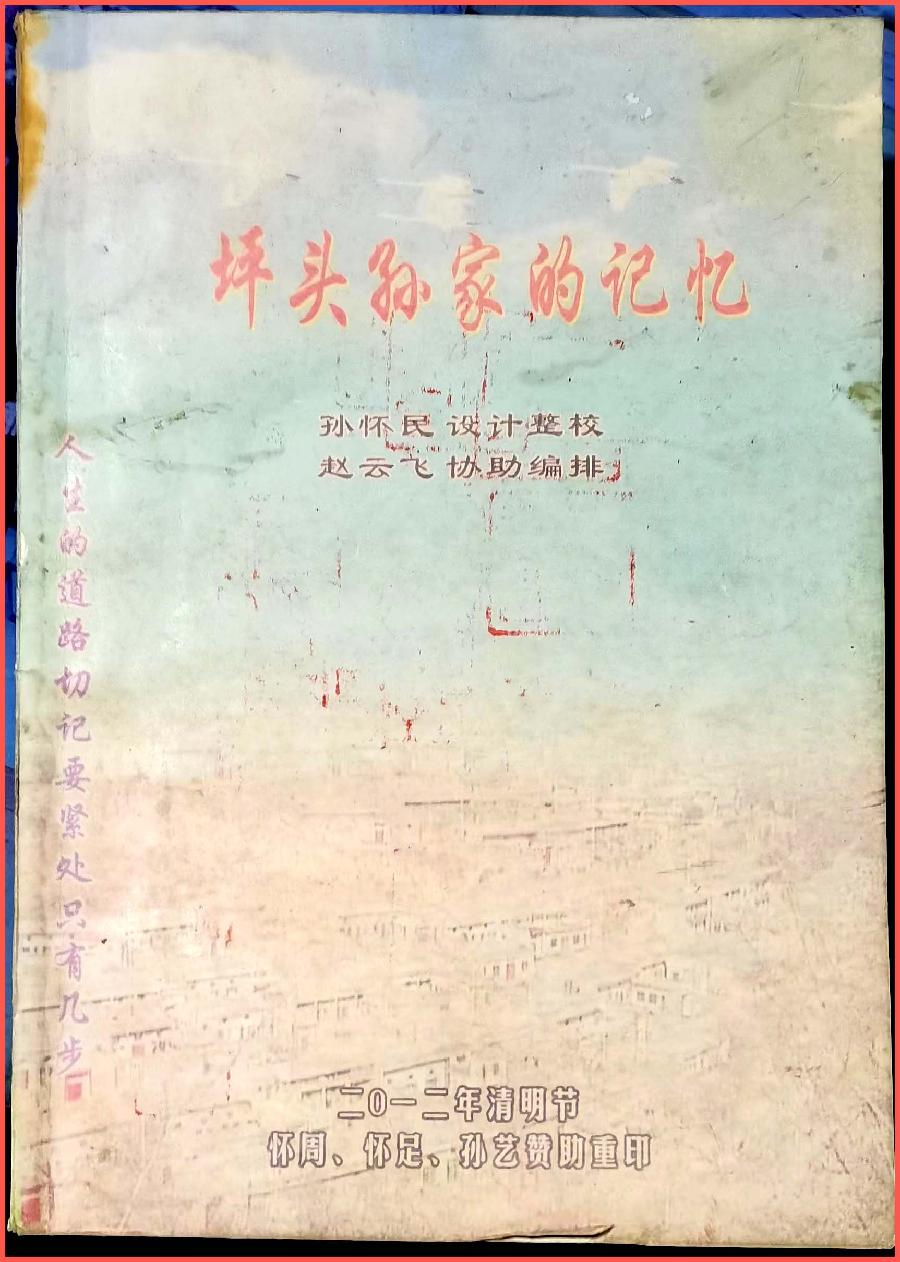 坪头孙家的记忆
孙怀民 设计整校
赵云飞 协助编排
人生的道路切记要紧处只有几步
二0一二年清明节
怀周、怀足、孙艺赞助重印